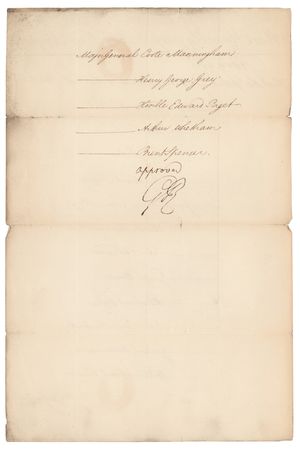 Major General Coote Manningham
Henry George Grey
Honble Edward Paget
Arthur Whetham
Brent Spencer.
approved
GR